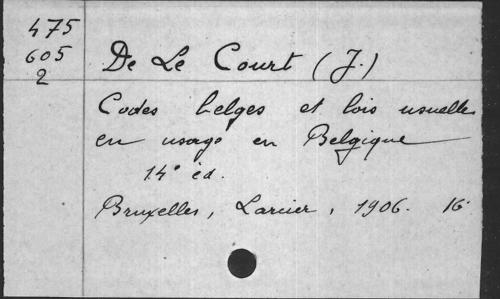 475
605
2
De Le Court (J.)
Codes belges et lois usuelles
en usage en Belgique
14° éd.
Bruxelles, Larcier, 1906. 16°